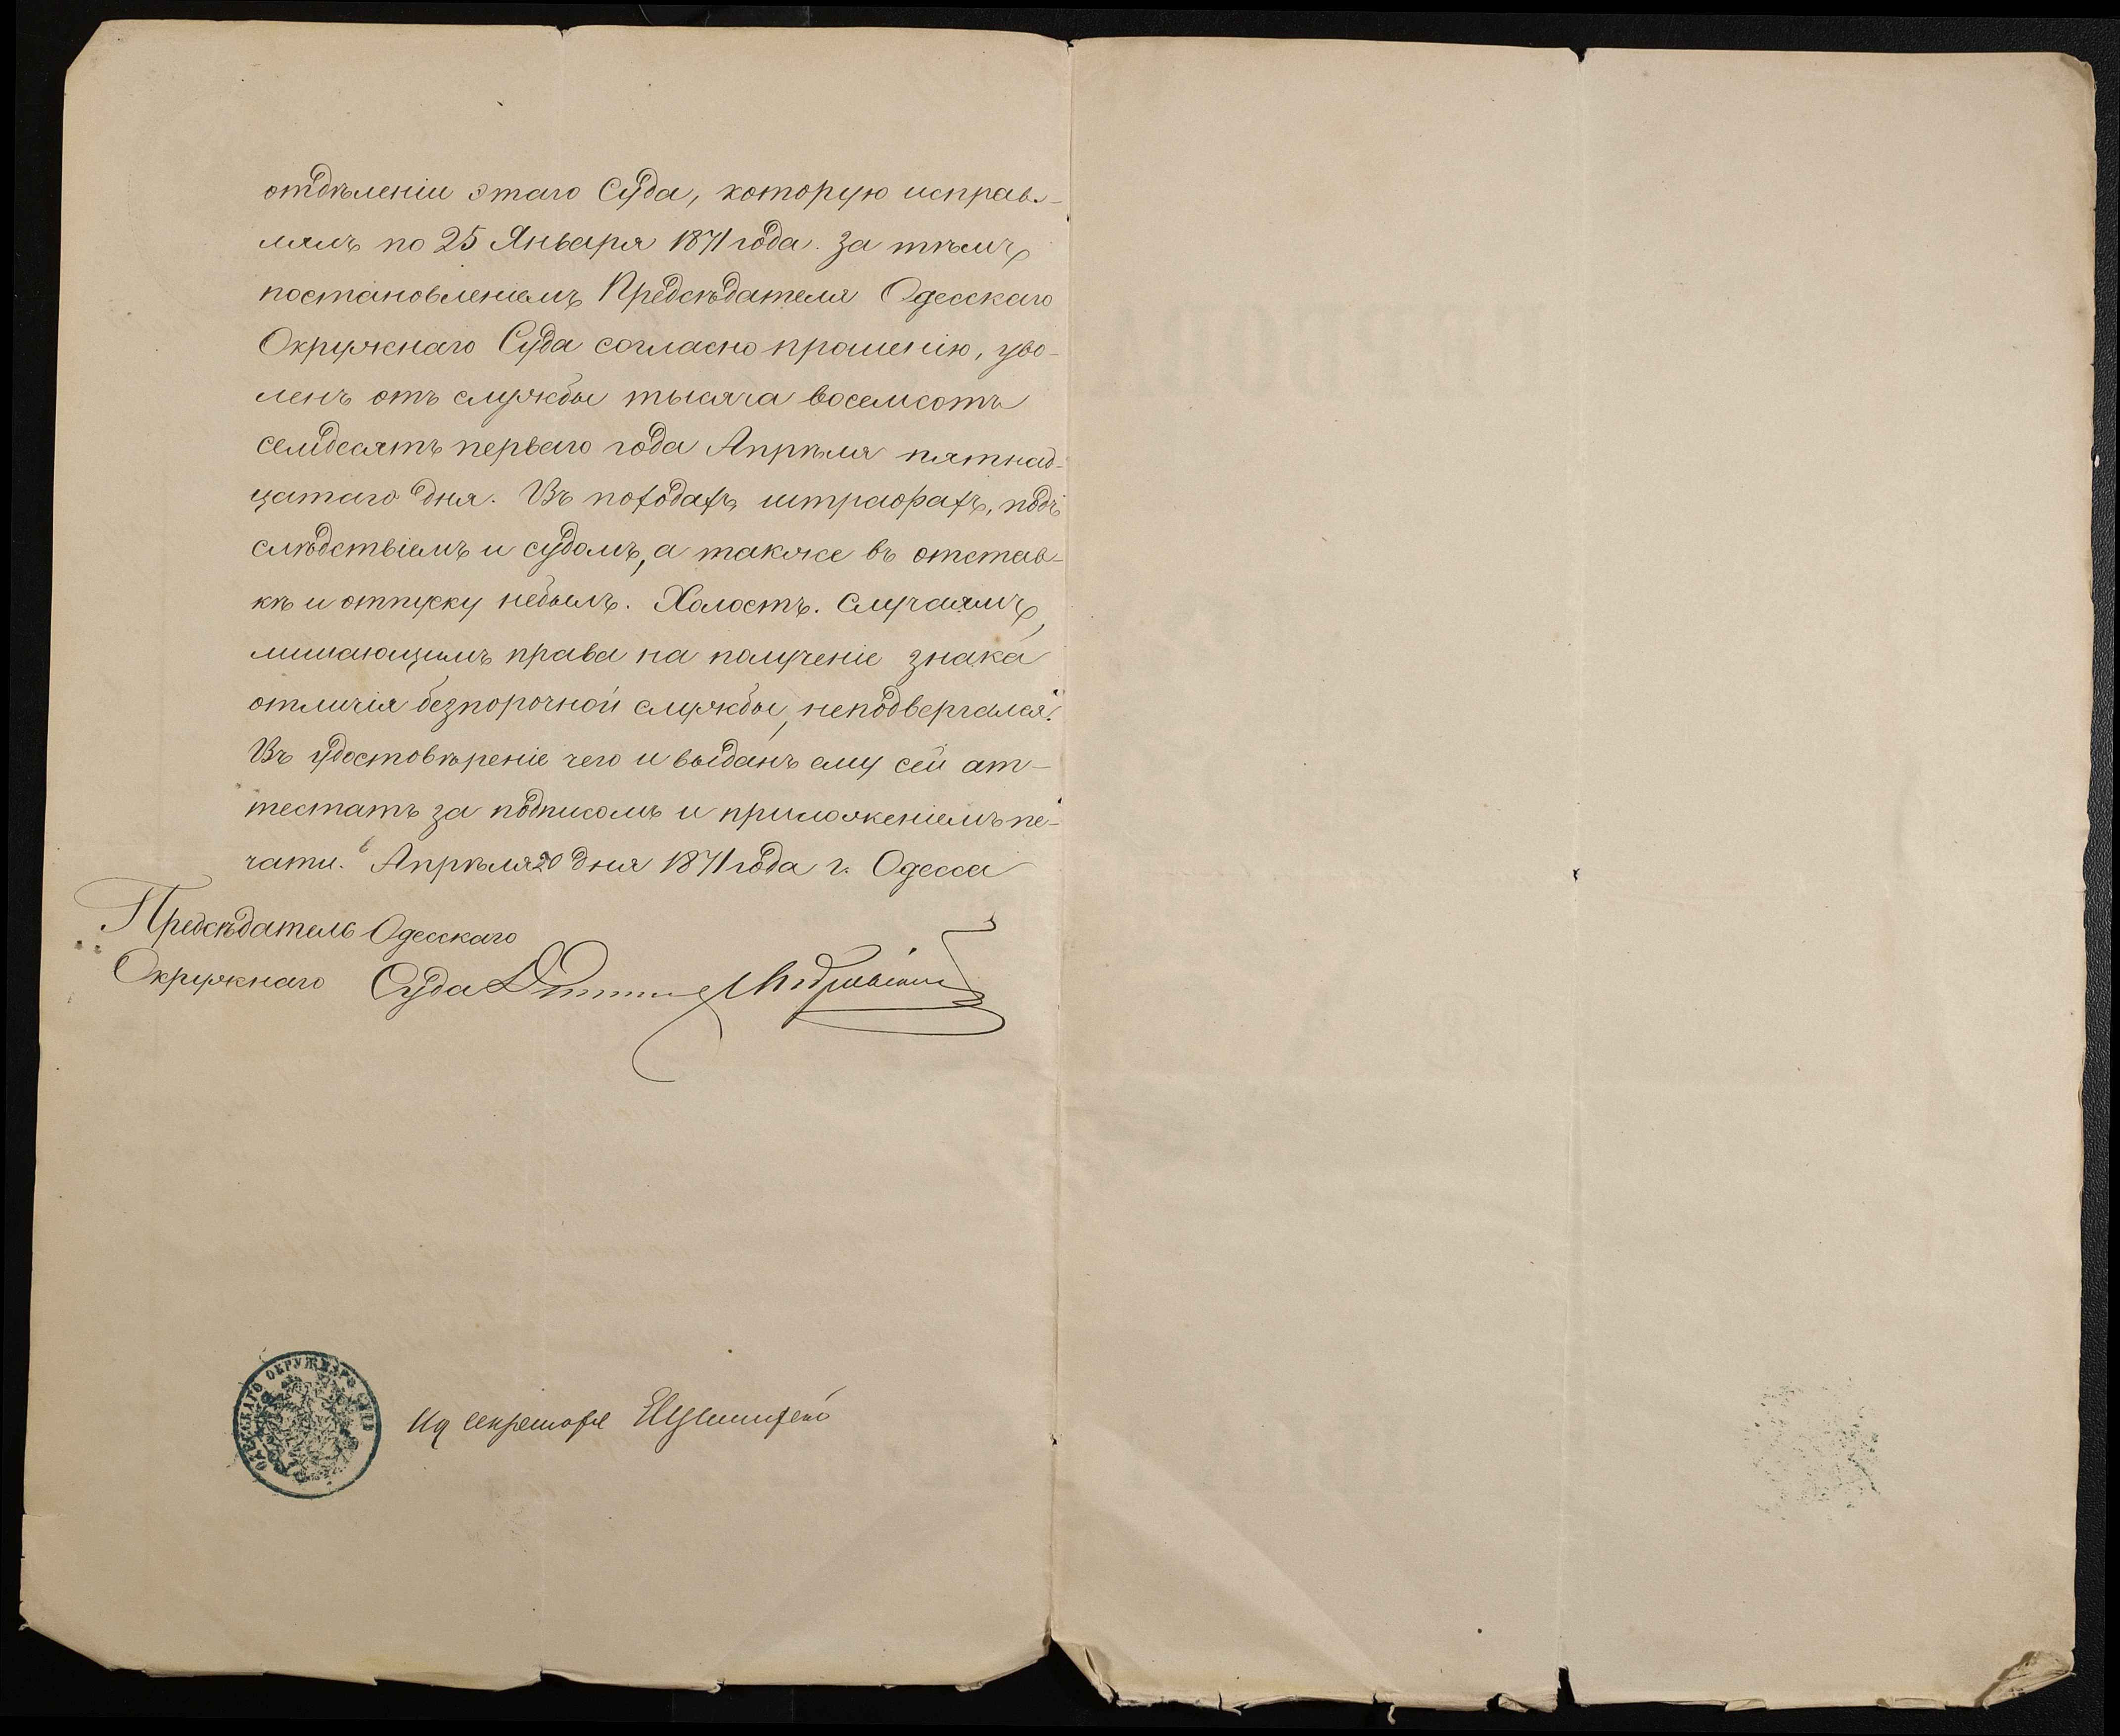 отдѣленіи этаго Суда, которую исправ-
лялъ по 25 Января 1871 года. За тѣмъ,
постановленіемъ Предсѣдателя Одесскаго
Окружнаго Суда согласно прошенію, уво-
ленъ отъ службы тысяча восемсотъ
семдесятъ перваго года Апрѣля пятнад-
цатаго дня. Въ походахъ, штрафахъ, подъ
слѣдствіемъ и судомъ, а также въ отстав-
кѣ и отпуску небылъ. Холостъ. Случаямъ,
лишающимъ права на полученіе знака
отличія безпорочной службы, неподвергался.
Въ удостовѣреніе чего и выданъ ему сей ат-
тестатъ за подписомъ и приложеніемъ пе-
чати. Апрѣля 20 дня 1871 года г. Одесса
Предсѣдатель Одесскаго
Окружнаго Суда
ОДЕССКАГО ОКРУЖНАГО СУДА
Ид Секретаря